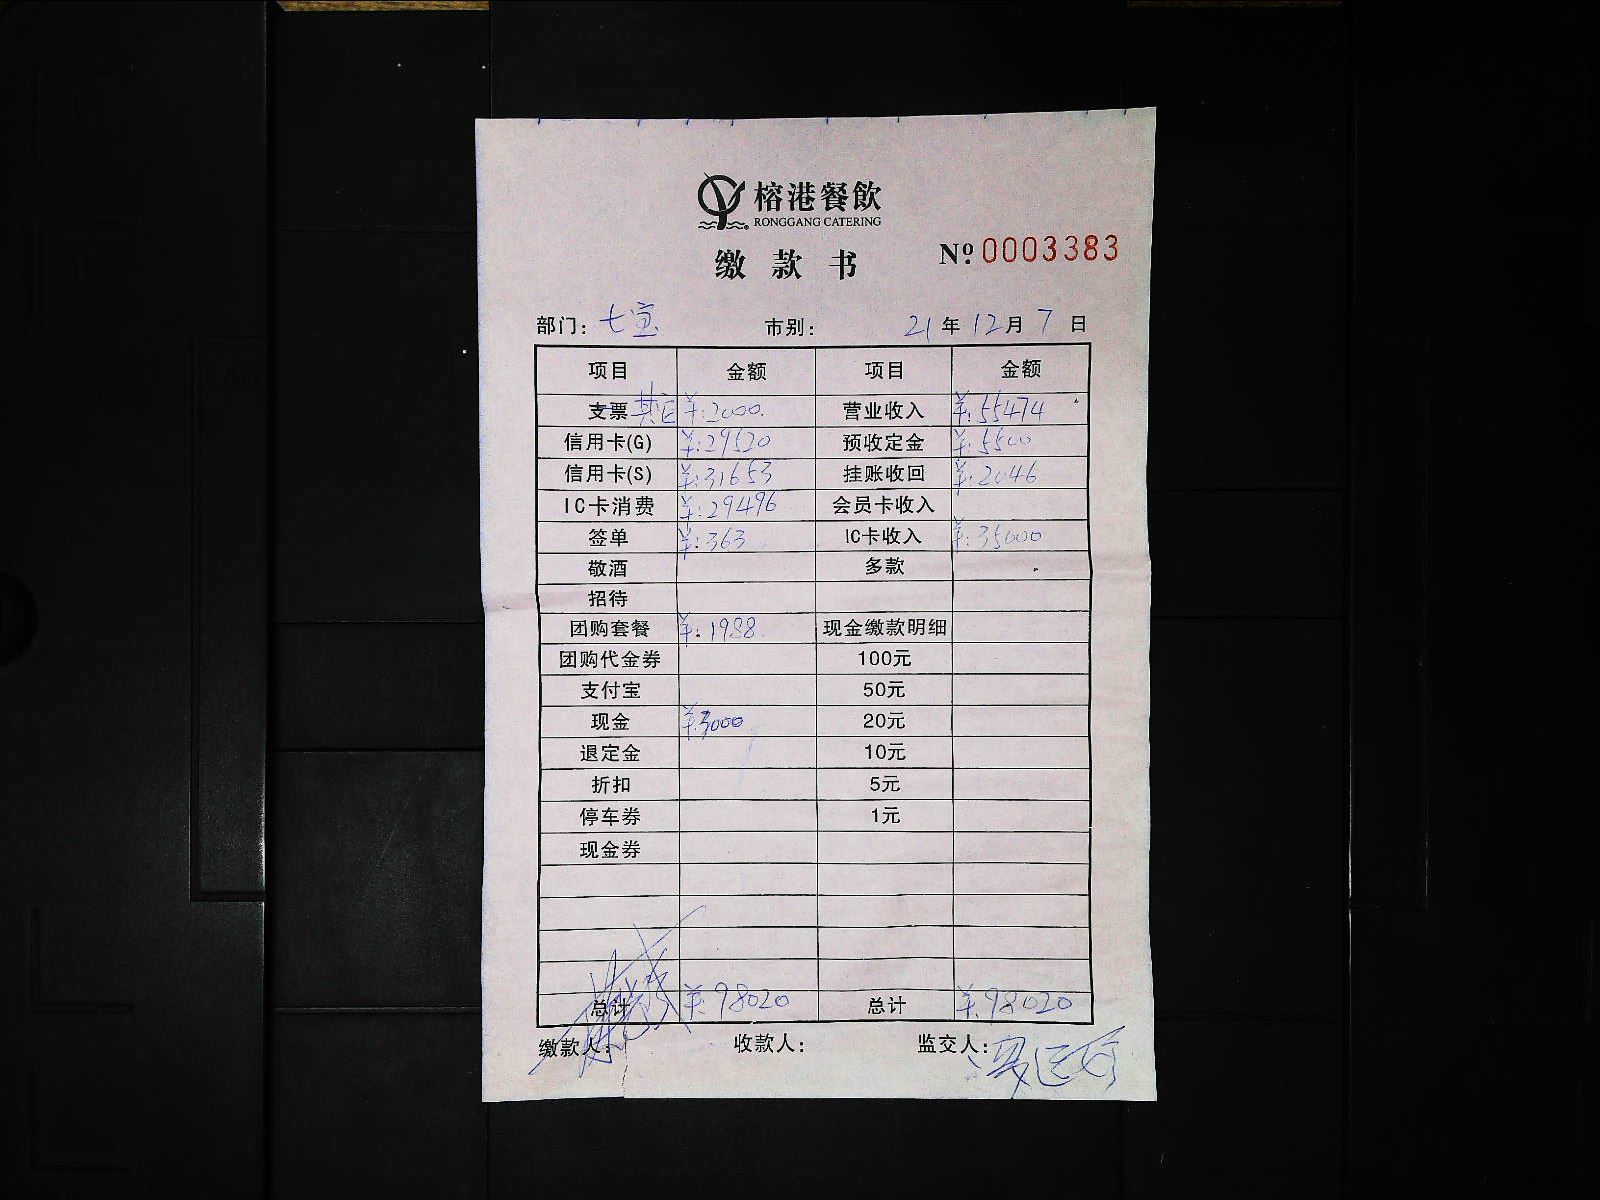 榕港餐飲
RONGGANG CATERING
缴款书 №0003383
部门：七宝 市别： 21年12月7日
项目 金额 项目 金额
支票 其它 ¥:2000. 营业收入 ¥:55474
信用卡(G) ¥:29520 预收定金 ¥:5500
信用卡(S) ¥:31653 挂账收回 ¥:2046
IC卡消费 ¥:29496 会员卡收入
签单 ¥:363 IC卡收入 ¥:35000
敬酒 多款
招待
团购套餐 ¥:1988 现金缴款明细
团购代金券 100元
支付宝 50元
现金 ¥:3000 20元
退定金 10元
折扣 5元
停车券 1元
现金券
总计 ¥:98020 总计 ¥:98020
缴款人： 收款人： 监交人：